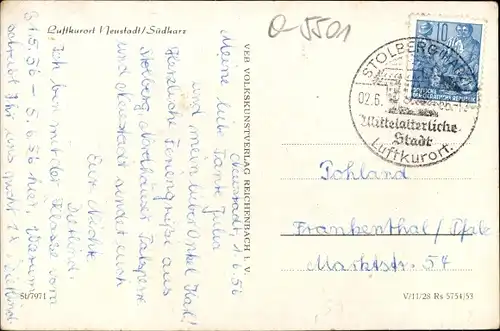 Luftkurort Neustadt/Südharz
Neustadt, 1.6.56
Meine liebe Tante Julia
und mein lieber Onkel Karl!
Herzliche Feriengrüße aus
Stolberg, Nordhäuser Talsperre
und Neustadt sendet euch
Eure Nichte
Ich bin mit der Klasse vom
31.5.56 - 5.6.56 hier. Warum
schreibt Ihr uns nicht
VEB VOLKSKUNSTVERLAG REICHENBACH I. V.
St/7971
0-5501
10
DEUTSCHE
DEMOKRATISCHE REPUBLIK
STOLBERG (HARZ)
02.6.
Mittelalterliche
Stadt
Luftkurort.
Pohland
Frankenthal/Pfalz
Marktstr. 54
V/11/28 Rs 5754/53